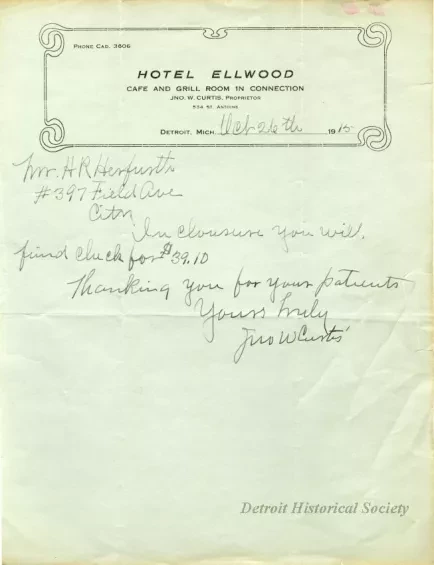 PHONE CAD. 3606
HOTEL ELLWOOD
CAFE AND GRILL ROOM IN CONNECTION
JNO. W. CURTIS, PROPRIETOR
534 ST. ANTOINE
DETROIT, MICH. Oct 26th 1915
Mr. H R Herfurth
#397 Field Ave
City
In closure you will
find check for $39.10
Thanking you for your patients
Yours truly
Jno W Curtis
Detroit Historical Society